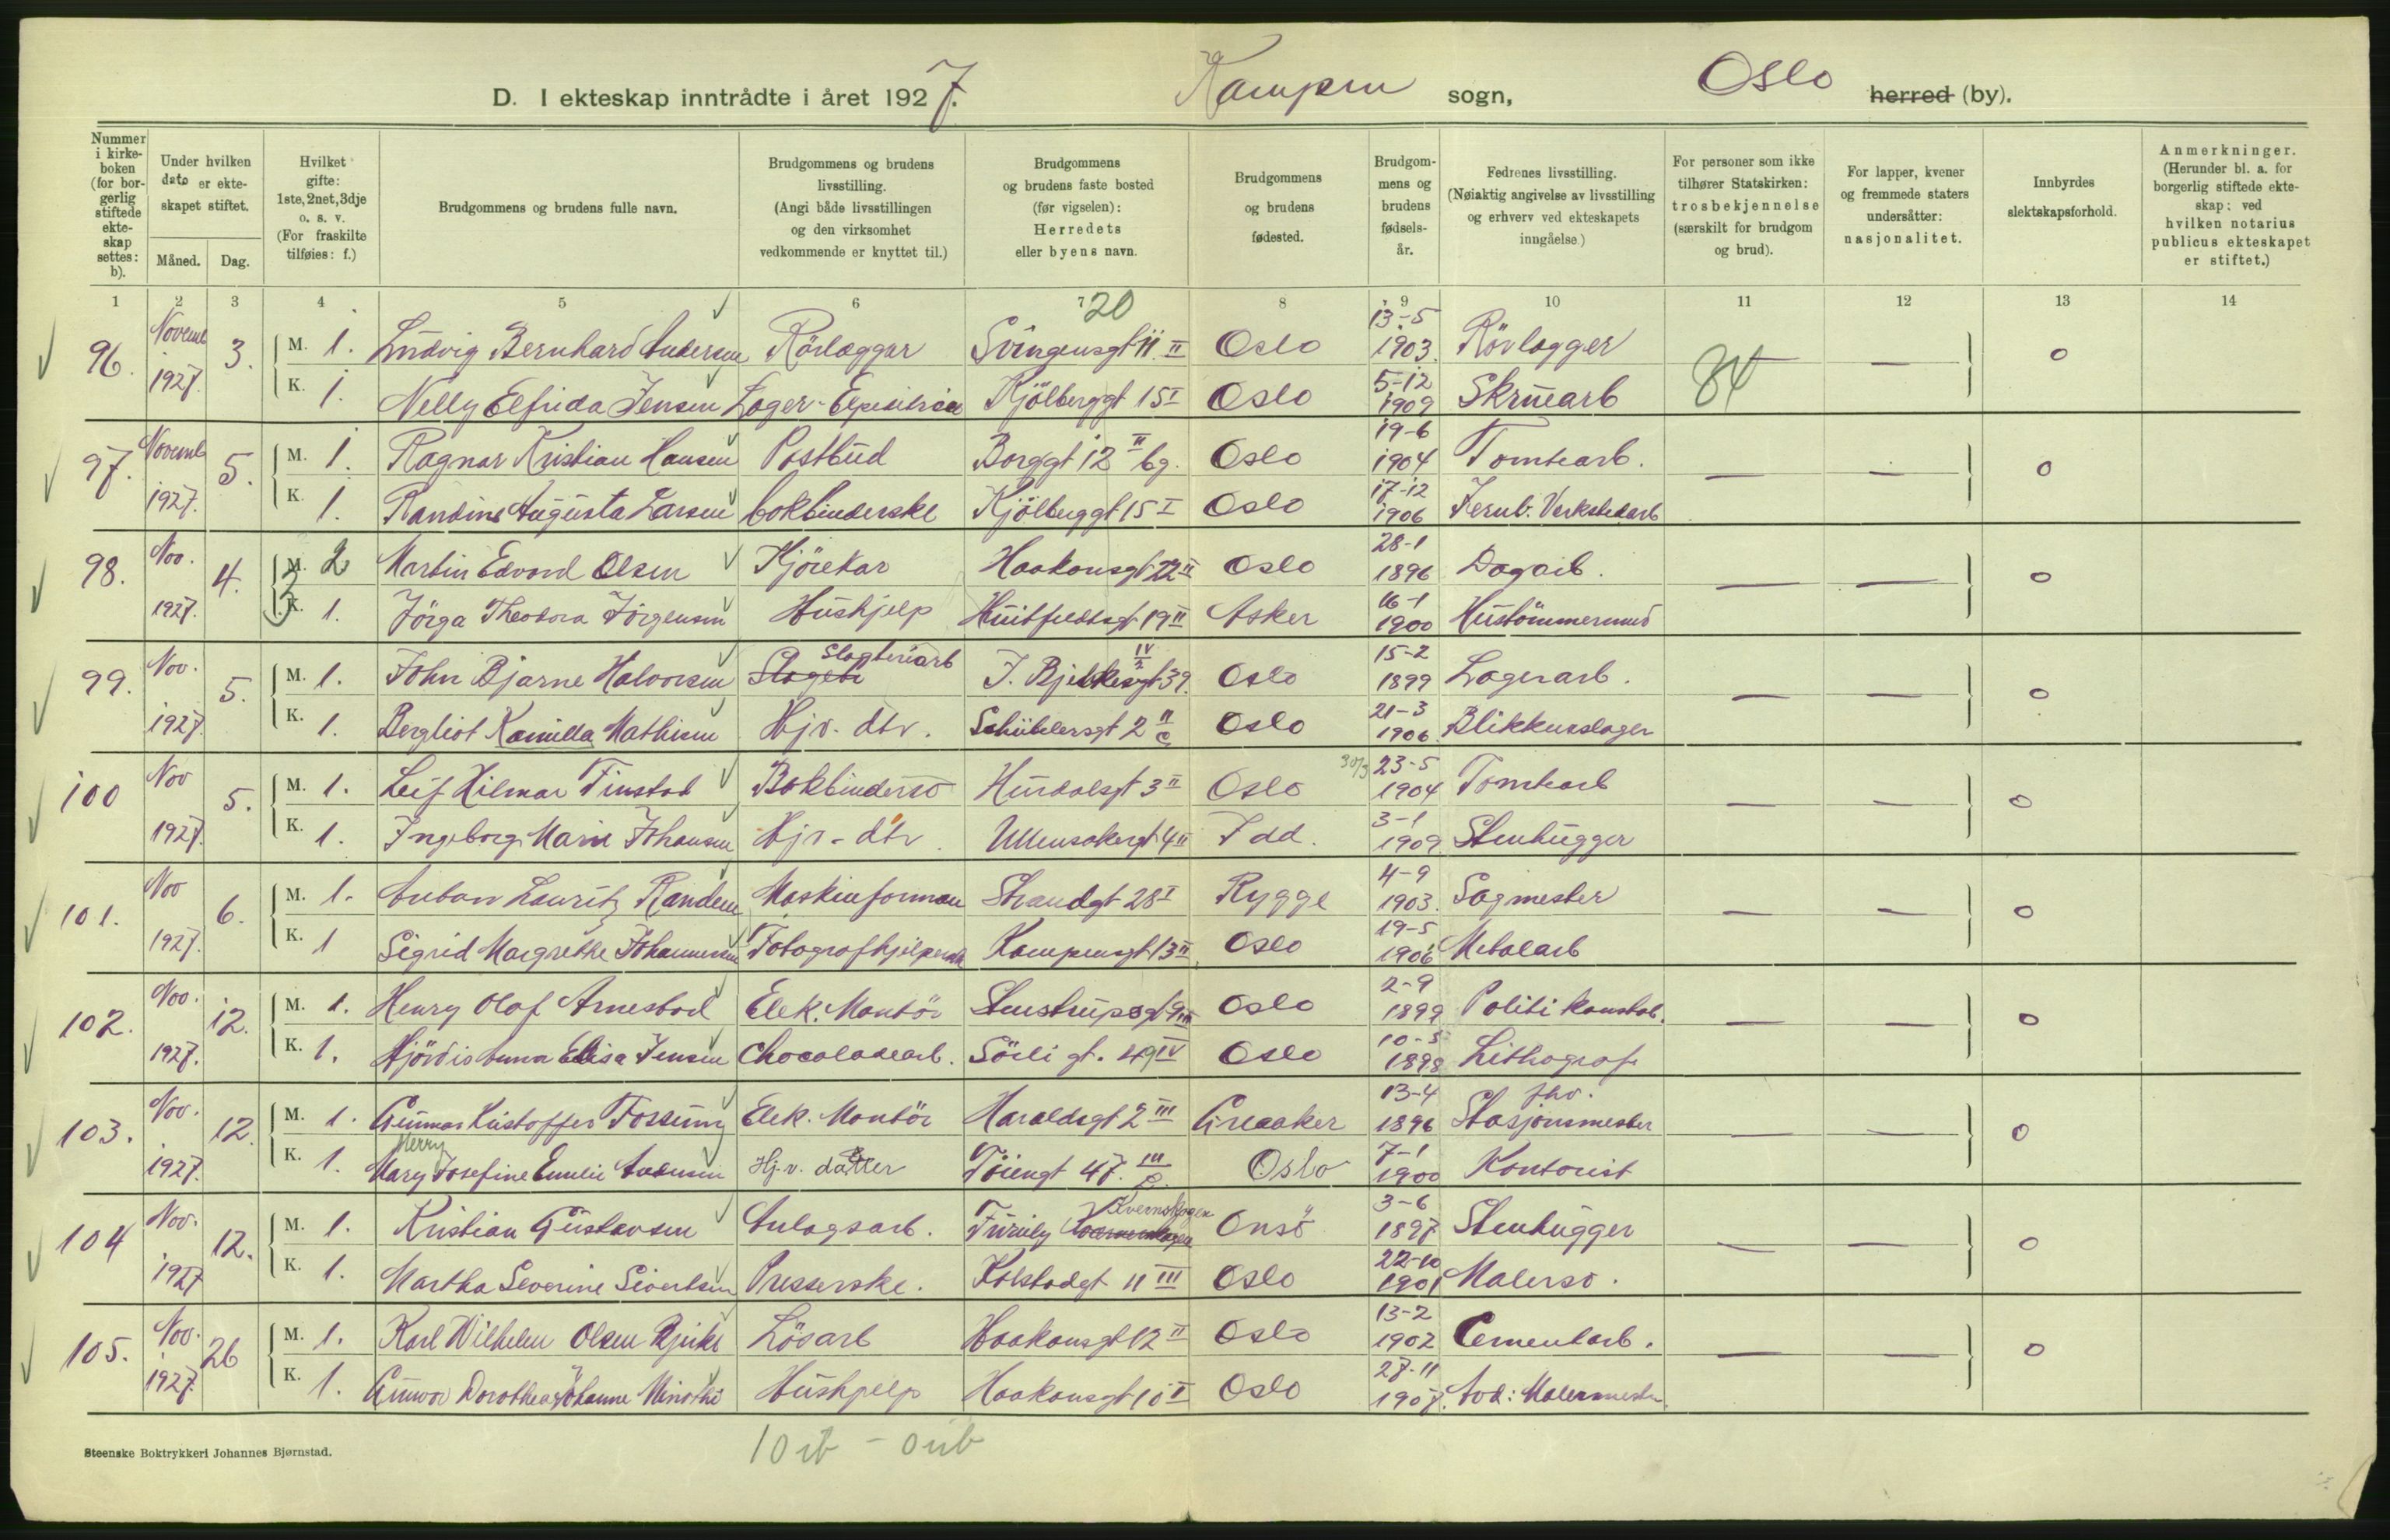 D. I ekteskap inntrådte i året 1927. Kampen sogn, Oslo herred (by).
Nummer i kirke-boken (for bor-gerlig stiftede ekte-skap settes: b).
Under hvilken dato er ekte-skapet stiftet.
Måned. Dag.
Hvilket gifte: 1ste, 2net, 3dje o. s. v. (For fraskilte tilføies: f.)
Brudgommens og brudens fulle navn.
Brudgommens og brudens livsstilling. (Angi både livsstillingen og den virksomhet vedkommende er knyttet til.)
Brudgommens og brudens faste bosted (før vigselen): Herredets eller byens navn.
Brudgommens og brudens fødested.
Brudgom-mens og brudens fødsels-år.
Fedrenes livsstilling. (Nøiaktig angivelse av livsstilling og erhverv ved ekteskapets inngåelse.)
For personer som ikke tilhører Statskirken: trosbekjennelse (særskilt for brudgom og brud).
For lapper, kvener og fremmede staters undersåtter: nasjonalitet.
Innbyrdes slektskapsforhold.
Anmerkninger. (Herunder bl. a. for borgerlig stiftede ekte-skap: ved hvilken notarius publicus ekteskapet er stiftet.)
1 2 3 4 5 6 7 8 9 10 11 12 13 14
20
96. Novemb 1927. 3. M. 1. Ludvig Bernhard Andersen Rörlægger Svingensgt 11 II Oslo 13-5 1903. Rörlægger 84 — 0
K. 1. Nelly Elfrida Jensen Lager-Expeditrice Kjölberggt 15 I Oslo 5-12 1909 Skruearb
97. Novemb 1927. 5. M. 1. Ragnar Kristian Hansen Postbud Borggt 12 II bg. Oslo 19-6 1904 Tomtearb. — — 0
K. 1. Randine Augusta Larsen bokbinderske Kjölberggt 15 I Oslo 17-12 1906 Jernb. Verkstedarb
98. Nov. 1927. 4. M. 2 Martin Edvard Olsen Kjörekar Haakonsgt 22 II Oslo 28-1 1896 Dagarb. — — 0
K. 1. Jörga Theodora Jörgensen Hushjelp Huitfeldtsgt 19 II Asker 16-1 1900 Hustömmermand
99. Nov. 1927. 5. M. 1. John Bjarne Halvorsen Slagteriarb J. Bjelkesgt 39. IV Oslo 15-2 1899 Lagerarb. — — 0
K. 1. Bergliot Kamilla Mathisen Hjv. dtr. Schübelersgt 2 II c Oslo 21-3 1906. Blikkenslager
100 Nov 1927. 5. M. 1. Leif Hilmar Finstad Bokbindersv Hurdalsgt 3 II Oslo 30/3 23-5 1904 Tomtearb — — 0
K. 1. Ingeborg Marie Johansen Hjv-dtr. Ullensakergt 4 II Idd. 3-1 1909 Stenhugger
101. Nov 1927. 6. M. 1. Anton Lauritz Randem Maskinformann Strandgt 28 I Rygge 4-9 1903. Sagmester — — 0
K. 1 Sigrid Margrethe Johannessen Fotografhjelperske Kampensgt 13 II Oslo 19-5 1906 Metalarb
102. Nov. 1927. 12. M. 1. Henry Olaf Arnestad Elek. Montör Stenstrupsgt 9 III Oslo 2-9 1899 Politikonstab. — — 0
K. 1. Hjördis Anna Elisa Jensen Chocoladearb. Sörligt. 49 IV Oslo 10-5 1898 Lithograf
103. Nov. 1927. 12. M. 1. Gunnar Kristoffer Fossum Elek. Montör Haraldsgt 2 III Greaaker 13-4 1896 fhv. Stasjonsmester — — 0
Herry
K. 1. Mary Josefine Emelie Andersen Hj.v. datter Töiengt 47. III Oslo 7-1 1900 Kontorist
104 Nov. 1927 12. M. 1. Kristian Gustavsen Anlagsarb. Furuly Kvernskogen Onsö 3-6 1897 Stenhugger — — 0
K. 1. Martha Severine Sivertsen Presserske. Kolstadgt 11 III Oslo 22-10 1901 Malersv.
105. Nov. 1927. 26 M. 1. Karl Wilhelm Olsen Bjerke Lösarb Haakonsgt 12 II Oslo 13-2 1902 Cementarb. — — 0
K. 1. Gunvor Dorothea Johanne Minothi Hushjelp Haakonsgt 10 I Oslo 27-11 1907. Avd: Malermester.
Steenske Boktrykkeri Johannes Bjørnstad.